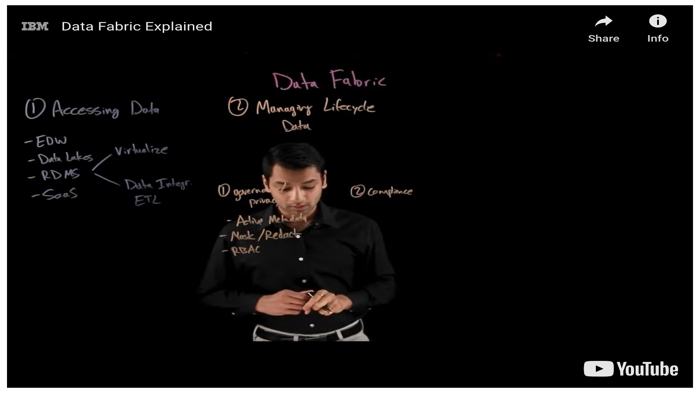 IBM
Data Fabric Explained
Share
Info
Data Fabric
① Accessing Data
- EDW
- Data Lakes
- RDMS
- SaaS
Virtualize
Data Integr.
ETL
② Managing Lifecycle
Data
①
privacy
- Active Metadata
- Mask/Redact
- RBAC
② Compliance
YouTube